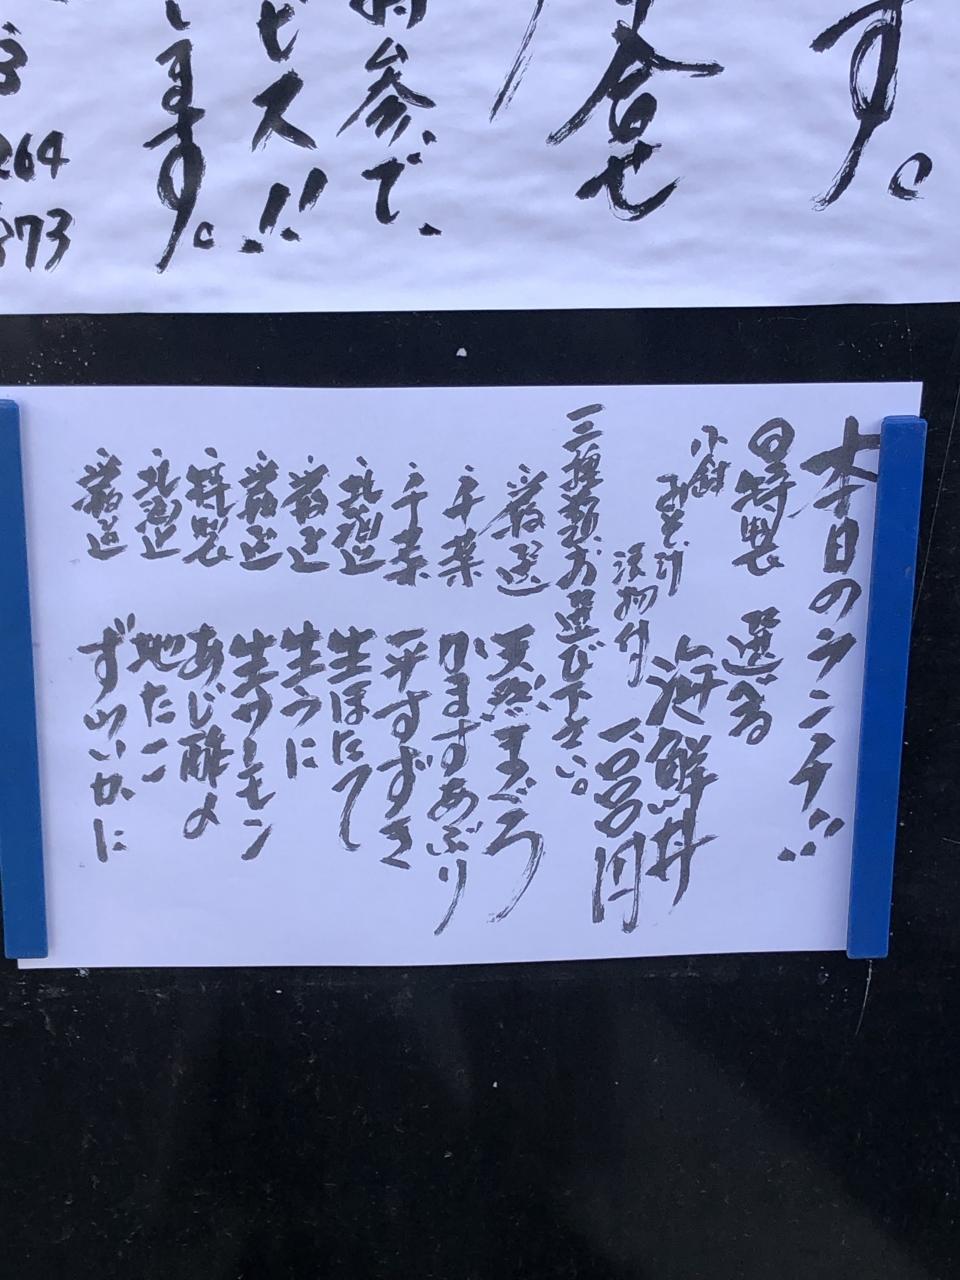 す。
合せ
持参で、
ビス!!
します。
264
873
本日のランチ!!
日特製 選る
海鮮丼
小鉢 みそ汁 漬物付
一、〇〇〇円
三種類お選び下さい。
厳選 天然まぐろ
千葉 かますあぶり
千葉 平すずき
北海道 生ほたて
厳選 生うに
厳選 生サーモン
特製 あじ酢〆
北海道 地たこ
厳選 ずワいかに